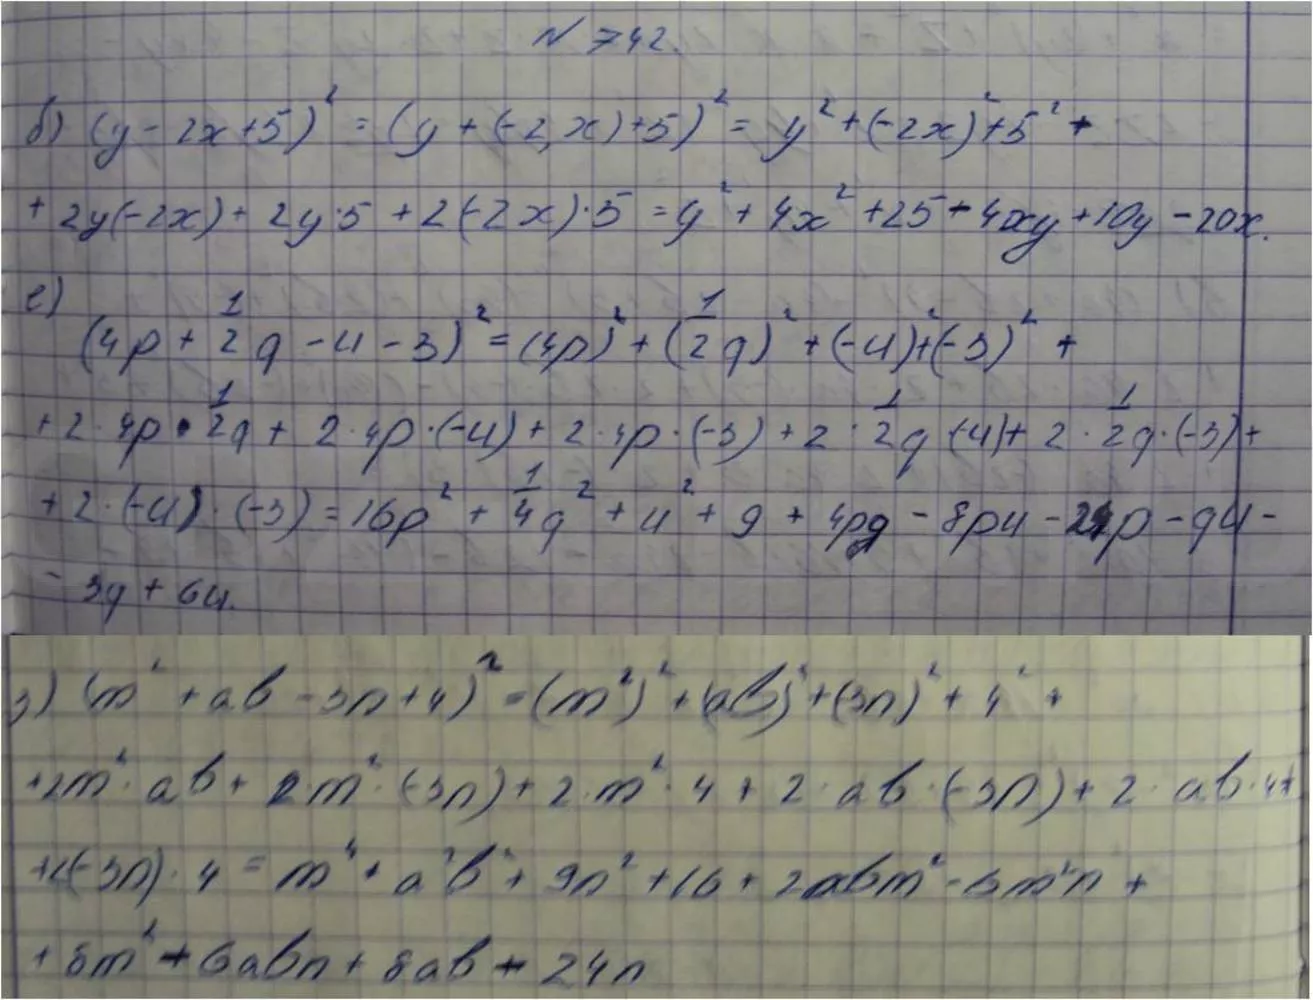 N 742.
б) (y - 2x + 5)² = (y + (-2x) + 5)² = y² + (-2x)² + 5² +
+ 2y(-2x) + 2y·5 + 2(-2x)·5 = y² + 4x² + 25 - 4xy + 10y - 20x.
е)
(4p + 1/2 q - u - 3)² = (4p)² + (1/2 q)² + (-u)² + (-3)² +
+ 2·4p · 1/2 q + 2·4p·(-u) + 2·4p·(-3) + 2·1/2 q (-u) + 2·1/2 q·(-3) +
+ 2·(-u)·(-3) = 16p² + 1/4 q² + u² + 9 + 4pq - 8pu - 24p - qu -
- 3q + 6u.
з) (m² + ab - 3n + 4)² = (m²)² + (ab)² + (3n)² + 4² +
+ 2m²·ab + 2m²·(-3n) + 2·m²·4 + 2·ab·(-3n) + 2·ab·4 +
+ 2(-3n)·4 = m⁴ + a²b² + 9n² + 16 + 2abm² - 6m²n +
+ 8m² - 6abn + 8ab - 24n